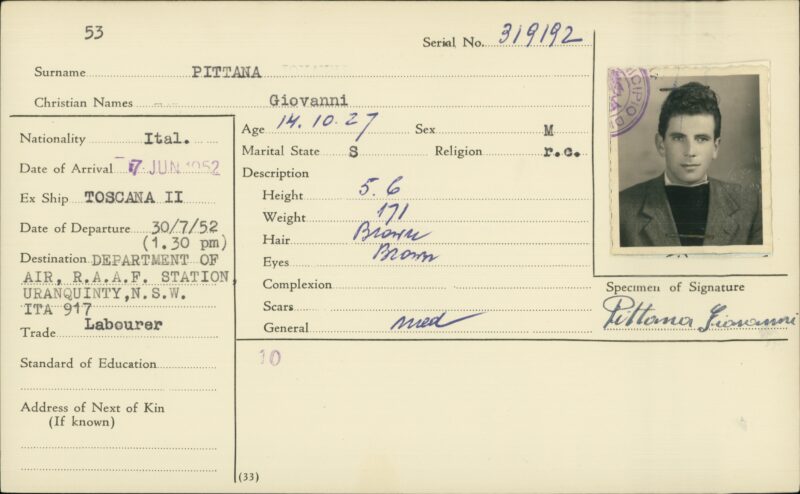 53
Serial No. 319192
Surname PITTANA
Christian Names Giovanni
Nationality Ital.
Date of Arrival 7 JUN 1952
Ex Ship TOSCANA II
Date of Departure 30/7/52
(1.30 pm)
Destination DEPARTMENT OF
AIR, R.A.A.F. STATION,
URANQUINTY, N.S.W.
ITA 917
Trade Labourer
Standard of Education
Address of Next of Kin
(If known)
Age 14.10.27 Sex M
Marital State S Religion r.c.
Description
Height 5.6
Weight 171
Hair Brown
Eyes Brown
Complexion
Scars
General med
10
(33)
ICIPIO D
Specimen of Signature
Pittana Giovanni